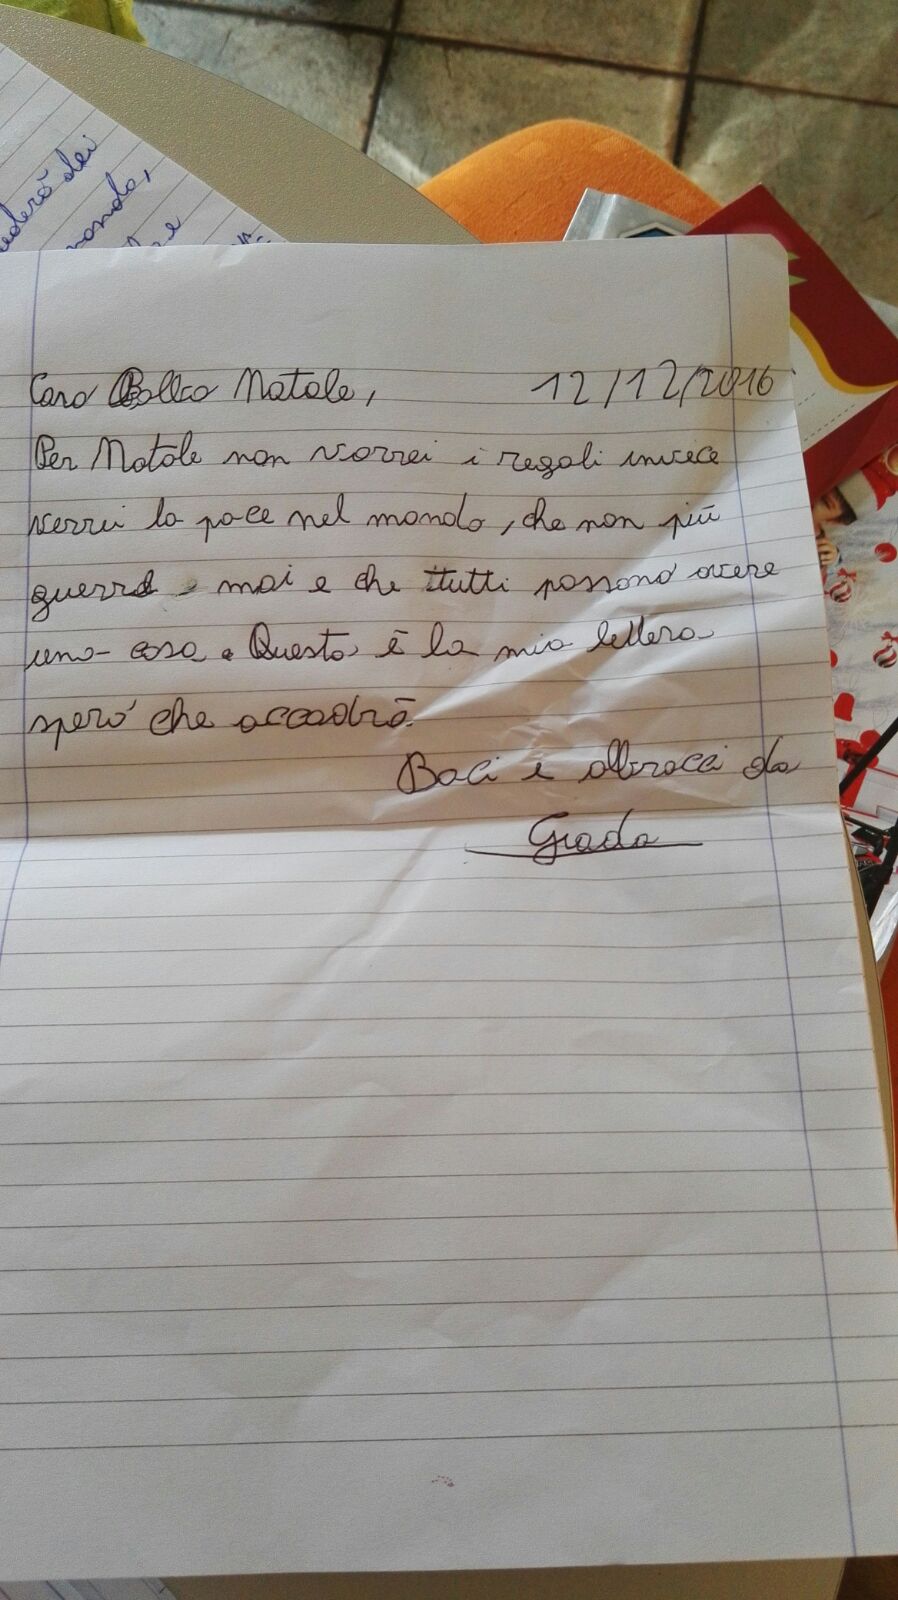 dei
mondo,
e
Caro Babbo Natale, 12/12/2016
Per Natale non vorrei i regali invece
vorrei la pace nel mondo, che non più
guerre mai e che tutti possono avere
una casa. Questa è la mia lettera
spero che accadrà.
Baci e abbracci da
Giada